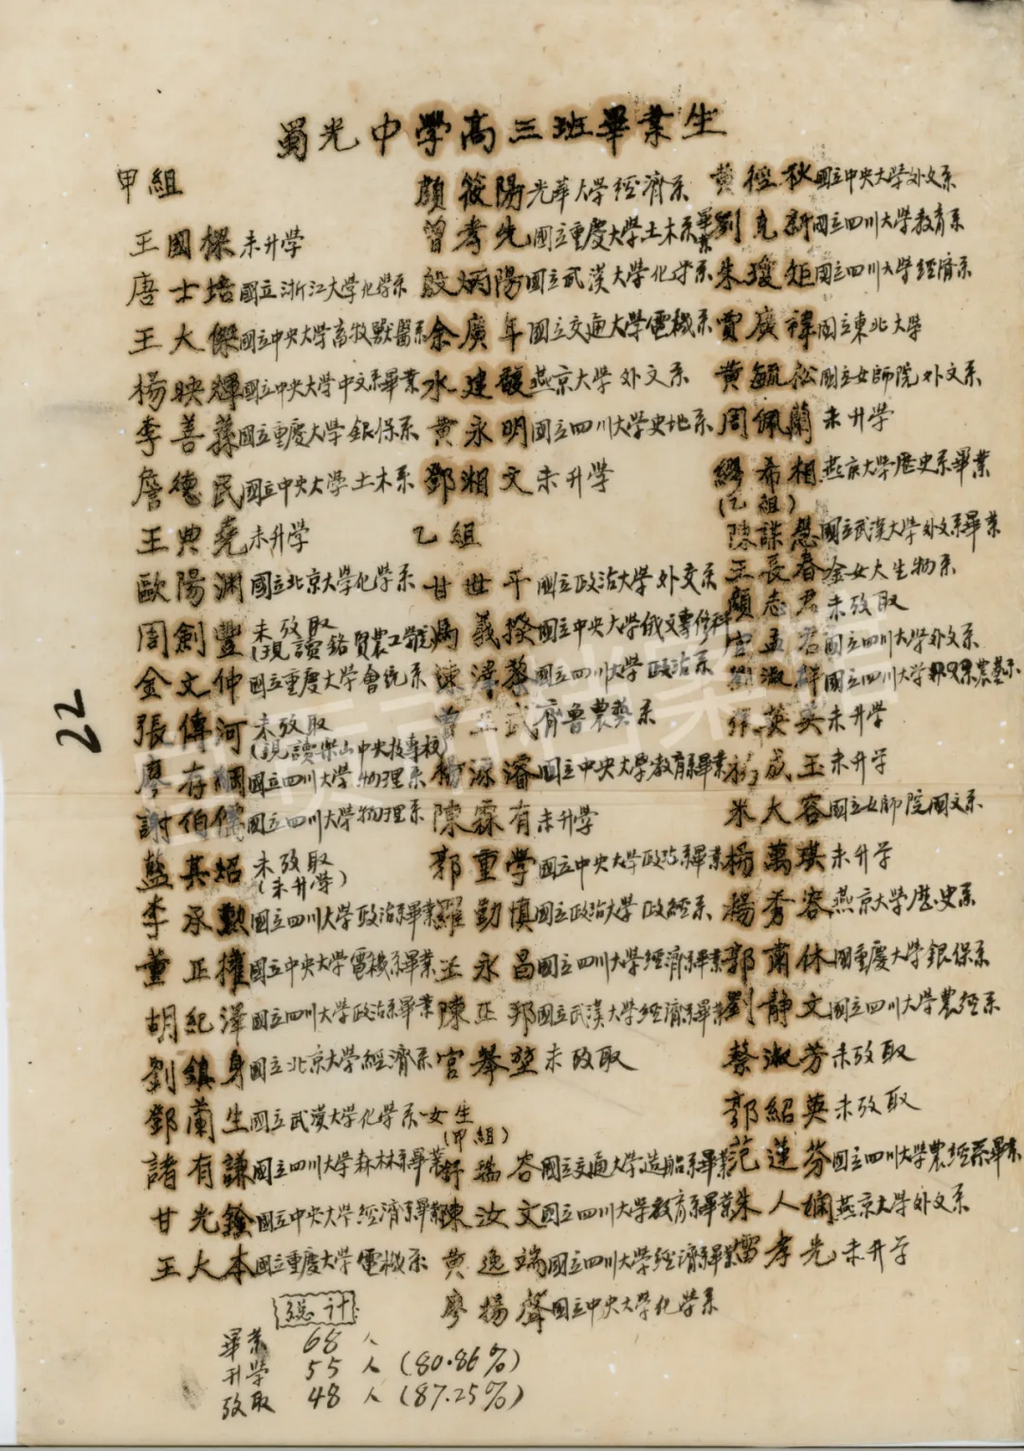 蜀光中学高三班畢業生
甲組
王國樑 未升学
唐士培 國立浙江大学化学系
王大傑 國立中央大学畜牧獸醫系
楊映輝 國立中央大学中文系畢業
李善蓀 國立重慶大学銀保系
詹德民 國立中央大学土木系
王典堯 未升学
歐陽渊 國立北京大学化学系
周劍豐 未攷取
金文仲 國立重慶大学會統系
張傳河 未攷取
(現讀樂山中央技專校)
廖存綱 國立四川大学物理系
謝伯儒 國立四川大学物理系
藍其紹 未攷取
(未升学)
李承勲 國立四川大学政治系畢業
董正㩲 國立中央大学電機系畢業
胡紀澤 國立四川大学政治系畢業
劉鎮身 國立北京大学經濟系
鄧蘭生 國立武漢大学化学系
諸有謙 國立四川大学森林系畢業
甘光銓 國立中央大学經濟系畢業
王大本 國立重慶大学電機系
顏筱陽 光華大学經濟系
曾孝先 國立重慶大学土木系畢業
殷炳陽 國立武漢大学化学系
余廣年 國立交通大学電機系
水建馥 燕京大学外文系
黄永明 國立四川大学史地系
鄧湘文 未升学
乙組
甘世平 國立政治大学外交系
馮義揆 國立中央大学俄文專修科
陳澤黎 國立四川大学政治系
曾正武 齊魯農藝系
楊源濬 國立中央大学教育系畢業
陳霖有 未升学
郭重学 國立中央大学政治系畢業
羅勤慎 國立政治大学政經系
王永昌 國立四川大学經濟系畢業
陳正邦 國立武漢大学經濟系畢業
宫舉堃 未攷取
女生
(甲組)
舒瑞容 國立交通大学造船系畢業
陳汝文 國立四川大学教育系畢業
黄逸端 國立四川大学經濟系畢業
廖揚聲 國立中央大学化学系
黄徑秋 國立中央大学外文系
劉克新 國立四川大学教育系
朱瓊矩 國立四川大学經濟系
賈廣禕 國立東北大学
黄毓松 國立女師院外文系
周佩蘭 未升学
繆希相 燕京大学歷史系畢業
(乙組)
陳謀慧 國立武漢大学外文系畢業
王長春 金女大生物系
顏志君 未攷取
宫孟君 國立四川大学外文系
劉淑群 國立四川大学農藝系
張英英 未升学
楊成玉 未升学
米大容 國立女師院國文系
楊萬琪 未升学
楊秀容 燕京大学歷史系
郭蕭休 國重慶大学銀保系
劉静文 國立四川大学農經系
蔡淑芳 未攷取
郭紹英 未攷取
范蓮芬 國立四川大学農經系畢業
朱人嫻 燕京大学外文系
雷孝光 未升学
總計
畢業 68 人
升学 55 人 (80.86%)
攷取 48 人 (87.25%)
22